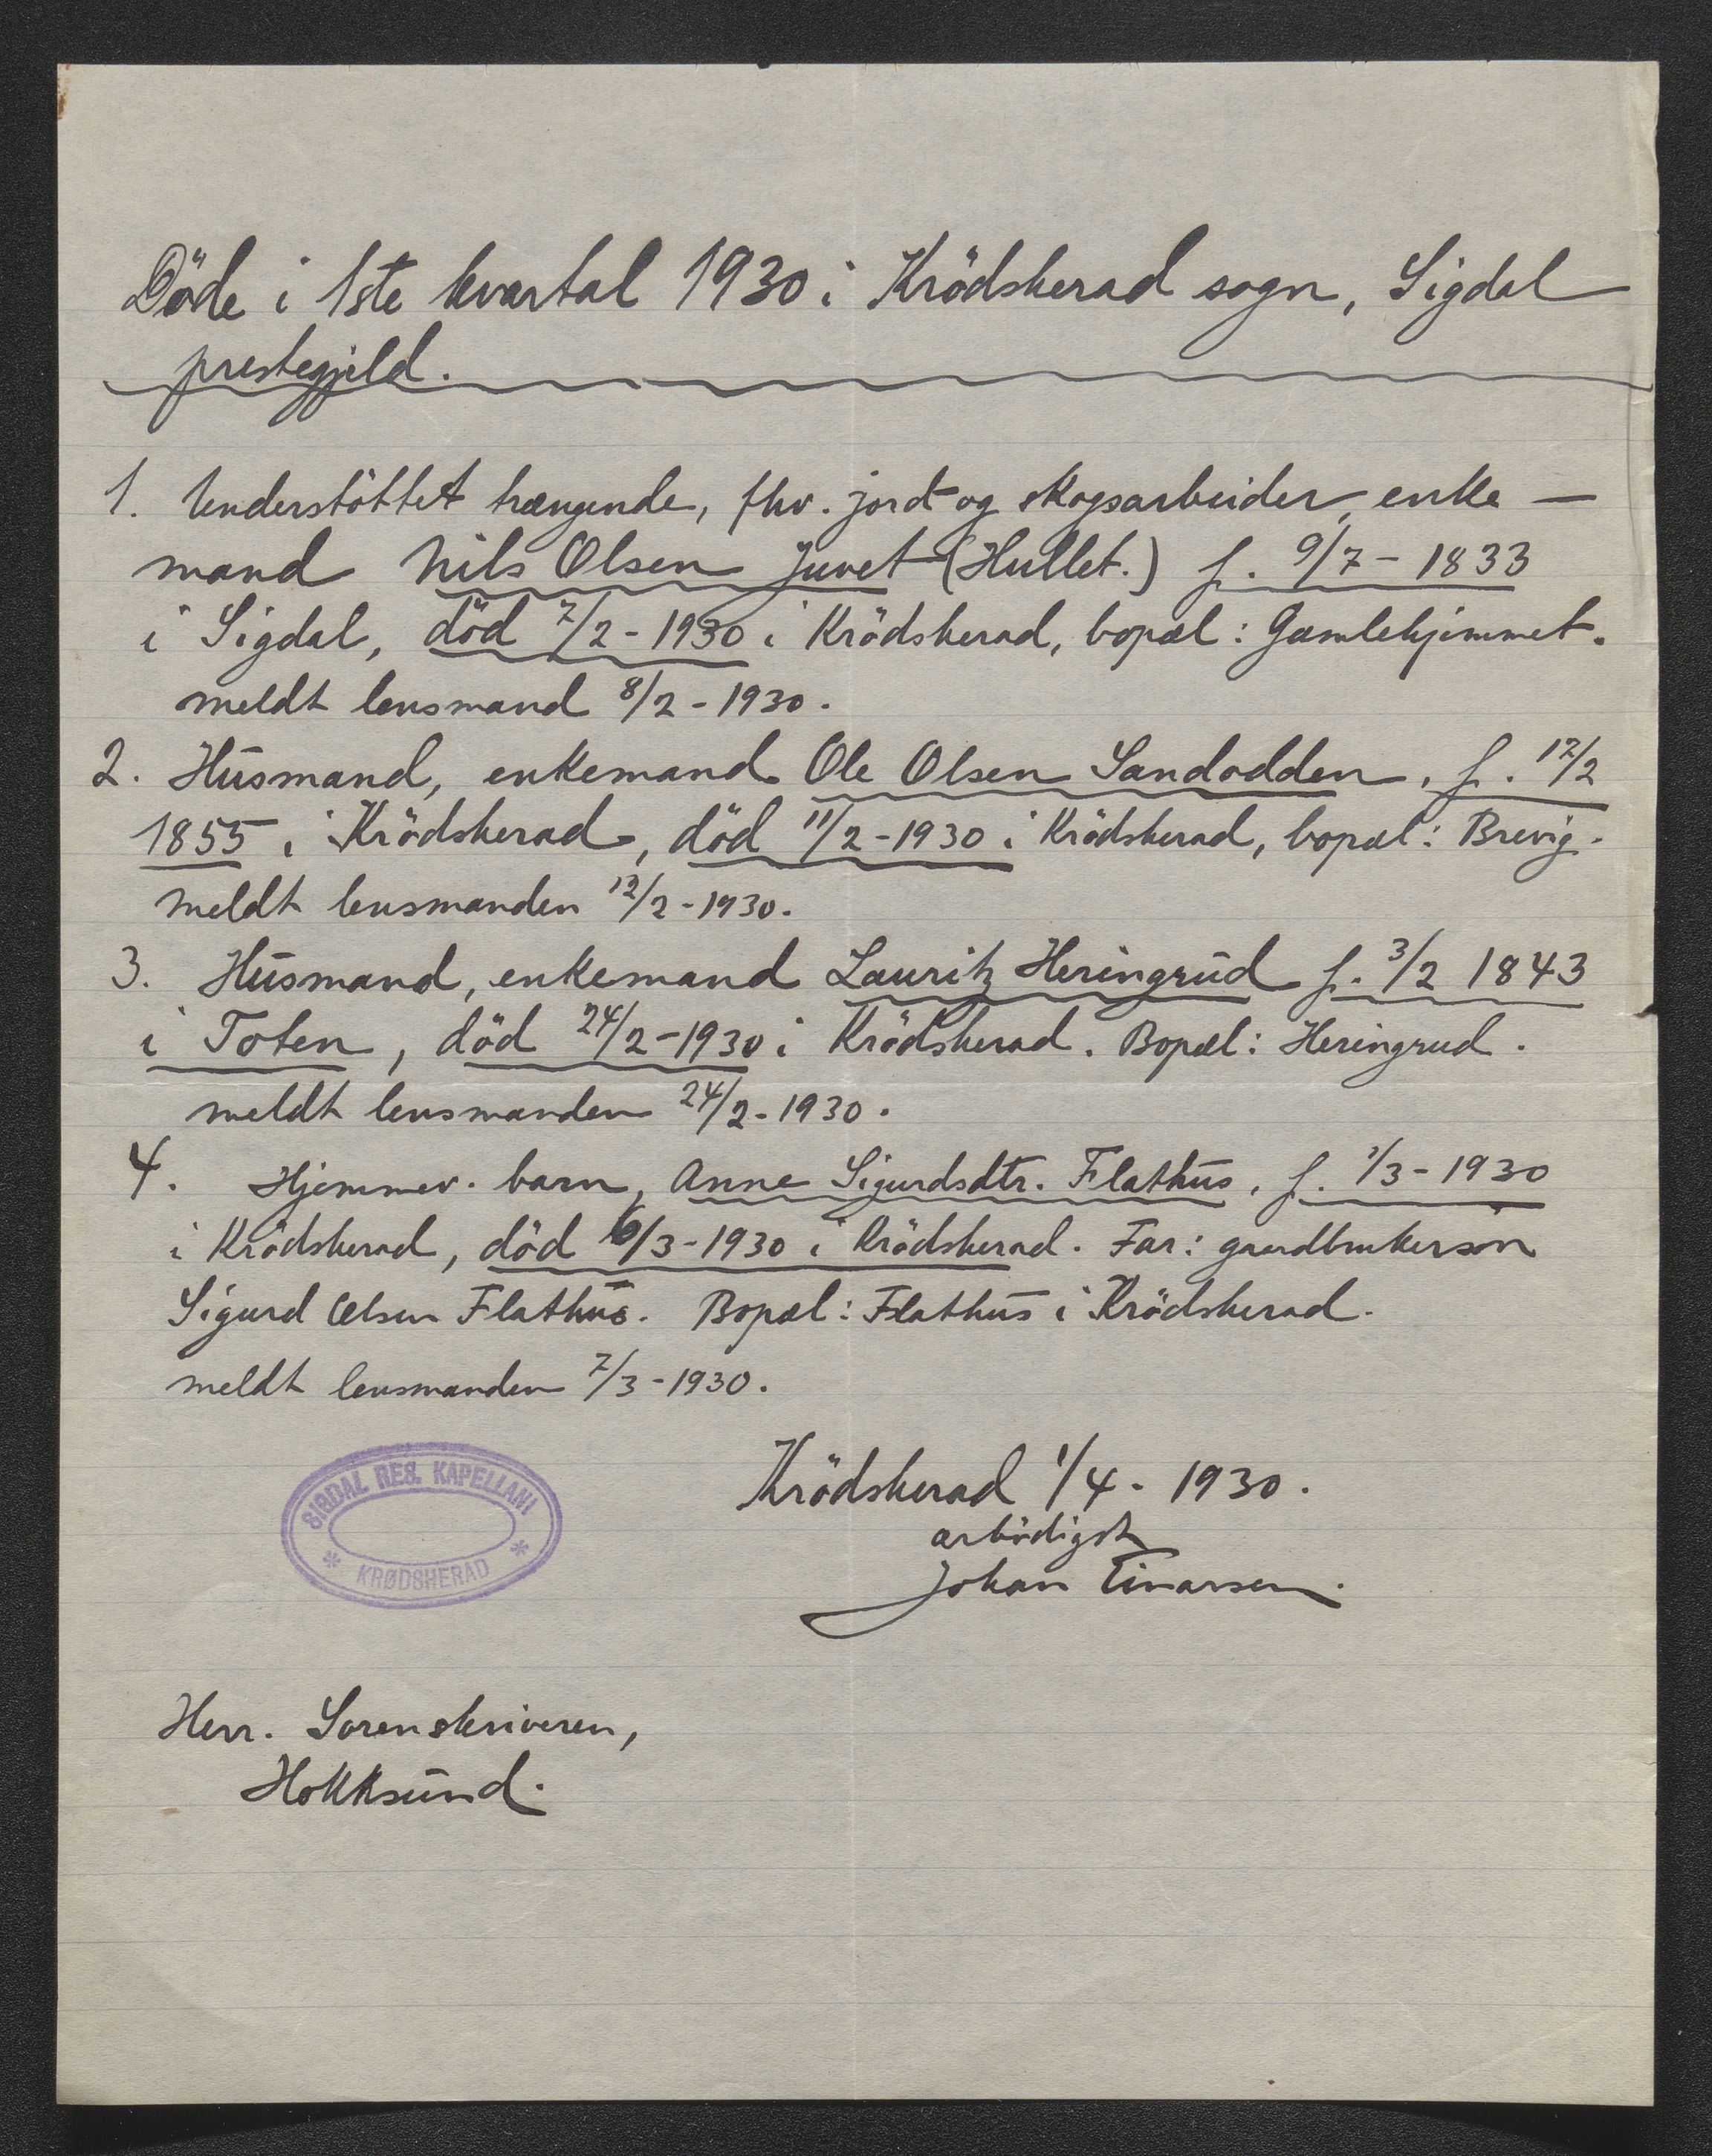 Döde i 1ste kvartal 1930 i Krödsherad sogn, Sigdal
prestegjeld.
1. Understöttet trængende, fhv. jord- og skogsarbeider, enke-
mand Nils Olsen Juvet (Hullet.) f. 9/7 - 1833
i Sigdal, död 7/2 - 1930 i Krödsherad, bopæl: Gamlehjemmet.
meldt lensmand 8/2 - 1930.
2. Husmand, enkemand Ole Olsen Sandodden, f. 12/2
1855 i Krödsherad, död 11/2 - 1930 i Krödsherad, bopæl: Brevig.
meldt lensmanden 12/2 - 1930.
3. Husmand, enkemand Lauritz Heringrud f. 3/2 1843
i Toten, död 24/2 - 1930 i Krödsherad. Bopæl: Heringrud.
meldt lensmanden 24/2 - 1930.
4. Hjemmev. barn, Anne Sigurdsdtr. Flathus, f. 1/3 - 1930
i Krödsherad, död 6/3 - 1930 i Krödsherad. Far: gaardbrukersön
Sigurd Olsen Flathus. Bopæl: Flathus i Krödsherad.
meldt lensmanden 7/3 - 1930.
Krödsherad 1/4 - 1930.
ærbödigst
Johan Einarsen.
SIGDAL RES. KAPELLANI
* KRØDSHERAD *
Herr. Sorenskriveren,
Hokksund.